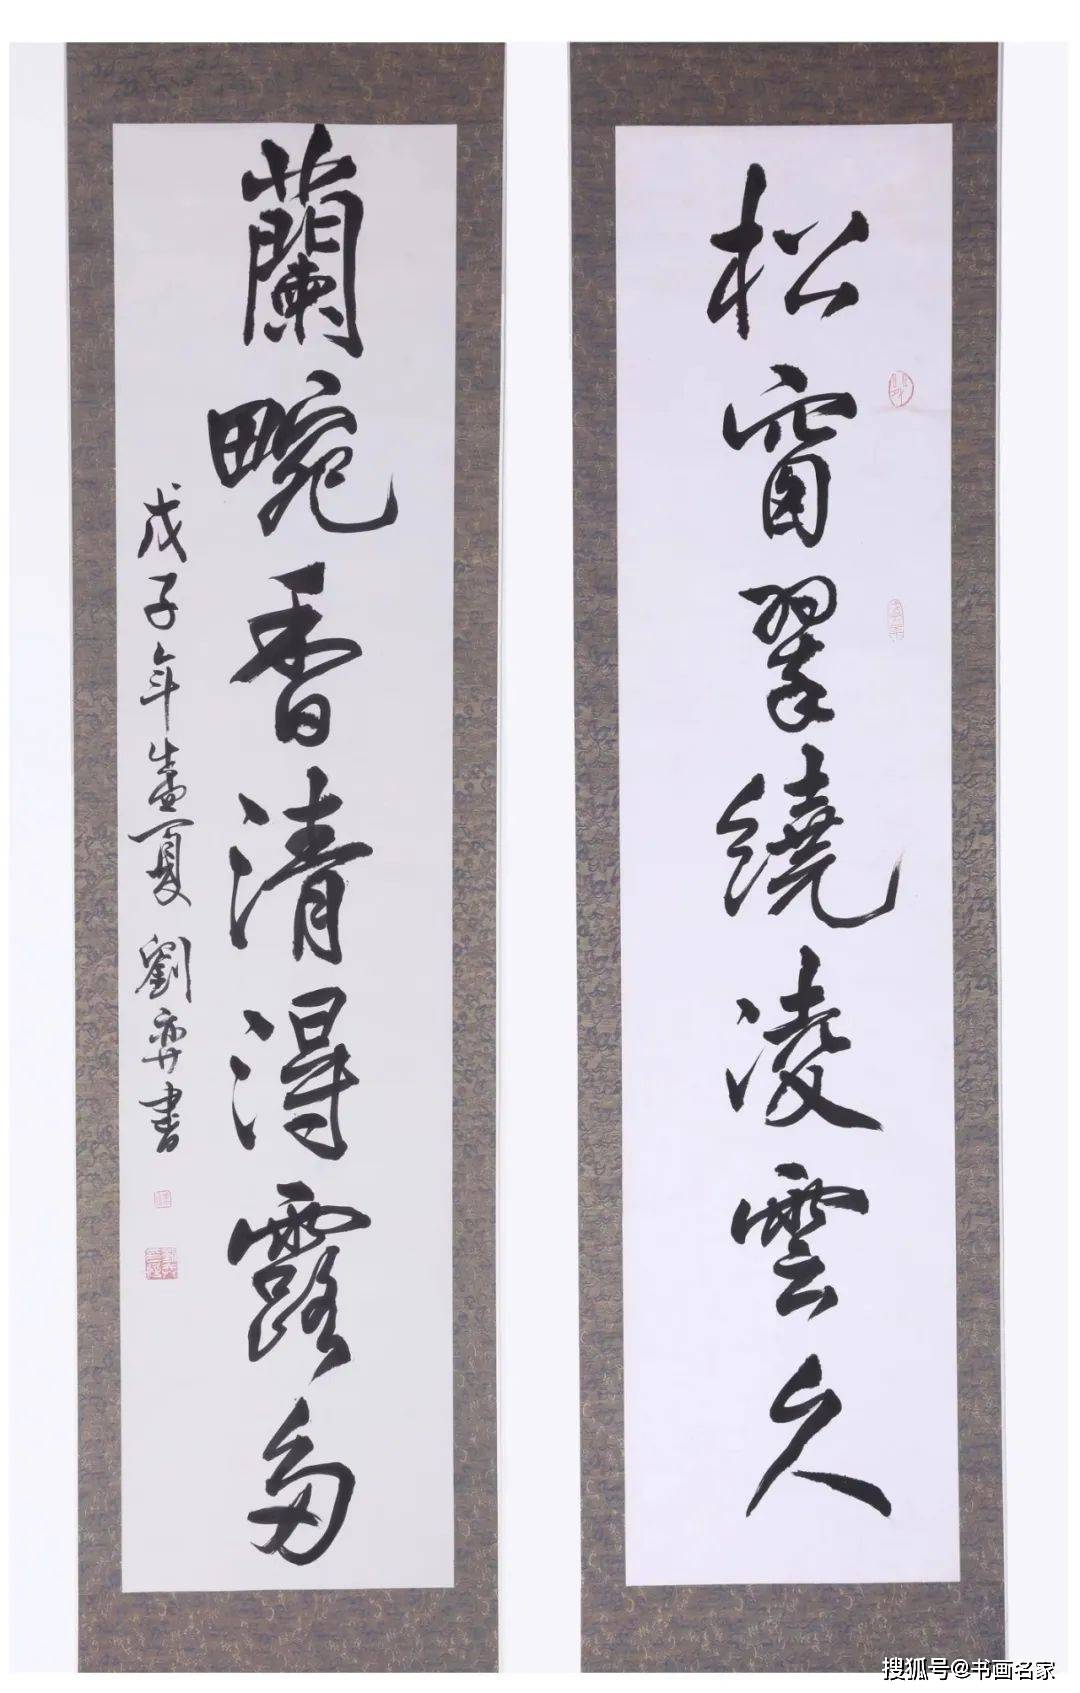 松窗翠繞凌雲久
蘭畹香清浥露多
戊子年孟夏劉弈書
搜狐号@书画名家